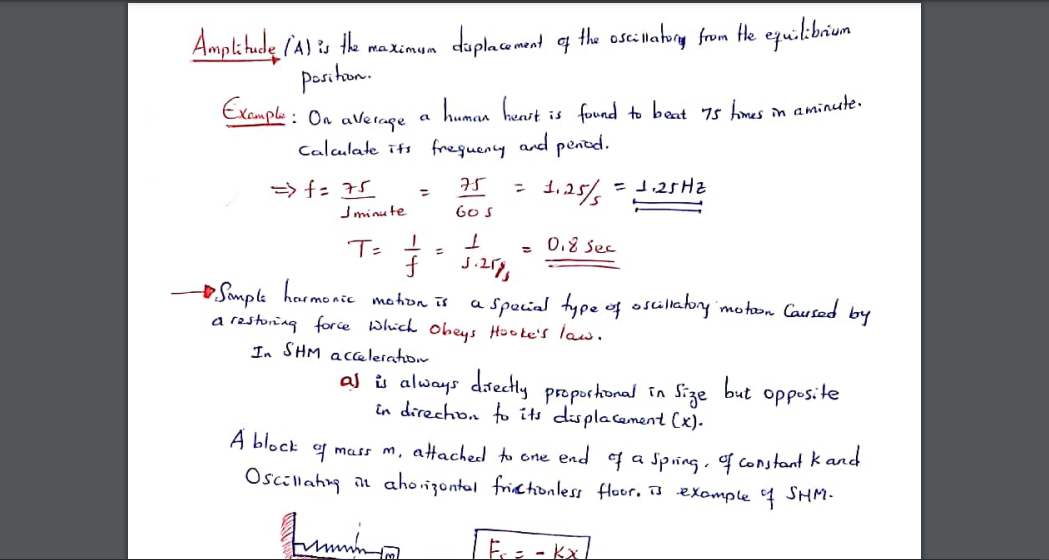 Amplitude (A) is the maximum displacement of the oscillatory from the equilibrium
position.
Example: On average a human heart is found to beat 75 times in a minute.
Calculate its frequency and period.
⇒ f = 75/1 minute = 75/60 s = 1.25/s = 1.25 Hz
T = 1/f = 1/1.25/s = 0.8 sec
→ Simple harmonic motion is a special type of oscillatory motion Caused by
a restoring force which obeys Hooke's law.
In SHM acceleration
a) is always directly proportional in size but opposite
in direction to its displacement (x).
A block of mass m, attached to one end of a spring, of constant k and
Oscillating in a horizontal frictionless floor, is example of SHM.
m
Fs = - kx